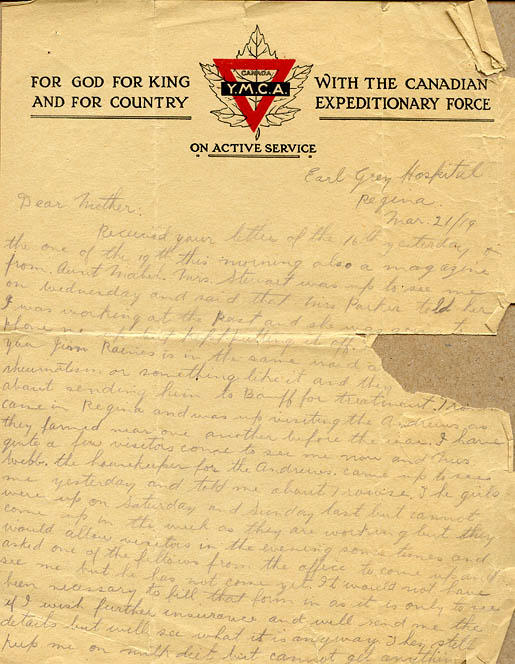 FOR GOD FOR KING
AND FOR COUNTRY
CANADA
Y.M.C.A.
WITH THE CANADIAN
EXPEDITIONARY FORCE
ON ACTIVE SERVICE
Earl Grey Hospital
Regina.
Mar. 21/19
Dear Mother:
Received your letter of the 16th yesterday &
the one of the 19th this morning also a magazine
from Aunt Mabel. Mrs. Stewart was up to see me
on Wednesday and said that Mrs Parker told her
I was working at the post and she
phone me but kept putting it off.
you Jim Raines is in the same ward
rheumatism or something like it and they
about sending him to Banff for treatment.
came in Regina and was up visiting the Andrews as
they farmed near one another before the war. I have
quite a few visitors come to see me now and Mrs
Webb. the housekeeper for the Andrews. came up to see
me yesterday and told me about The girls
were up on Saturday and Sunday last but cannot
come up in the week as they are working but they
would allow visitors in the evening sometimes and
asked one of the fellows from the office to come up and
see me but he has not come yet. It would not have
been necessary to fill that form in as it is only to see
if I wish further insurance and will send me the
details but will see what it is anyway. They still
keep me on milk diet but cannot get